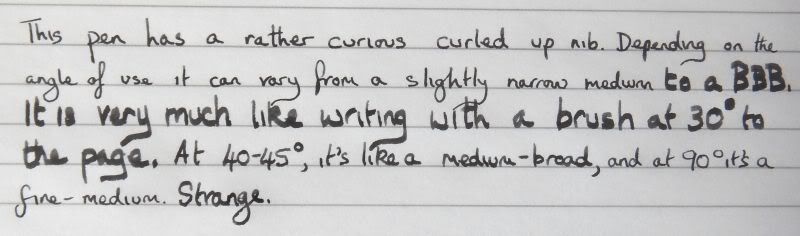 This pen has a rather curious curled up nib. Depending on the
angle of use it can vary from a slightly narrow medium to a BBB.
It is very much like writing with a brush at 30° to
the page. At 40-45°, it's like a medium-broad, and at 90° it's a
fine-medium. Strange.